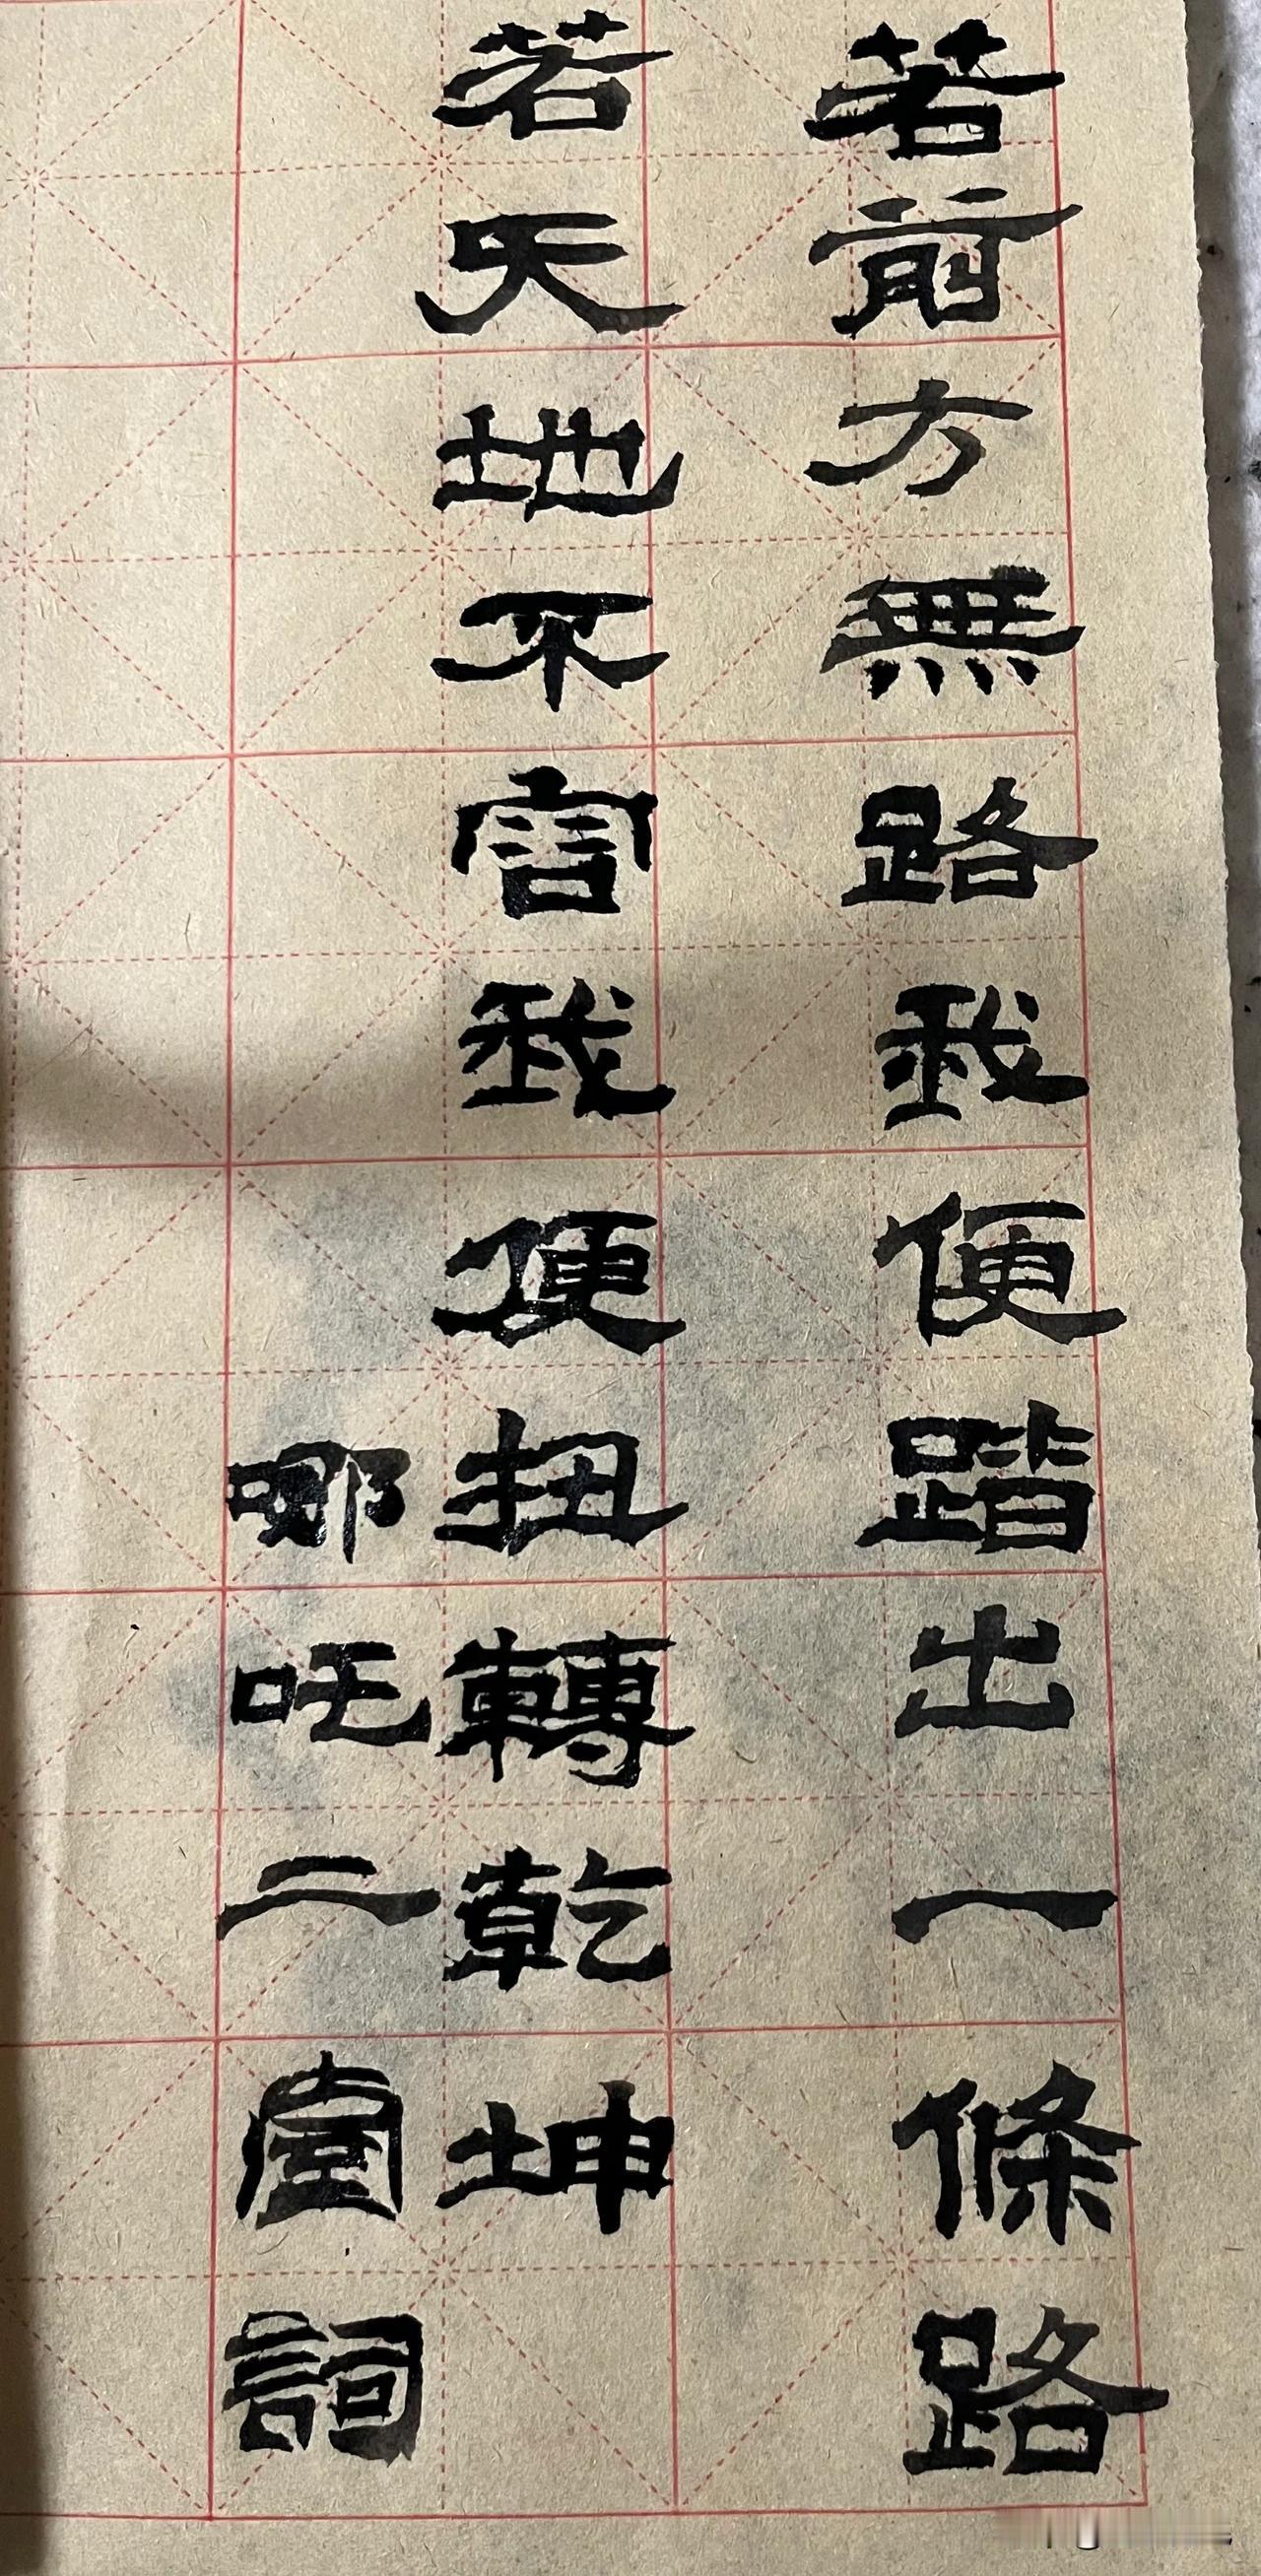 若前方無路我便踏出一條路
若天地不害我便扭轉乾坤
哪吒二臺詞